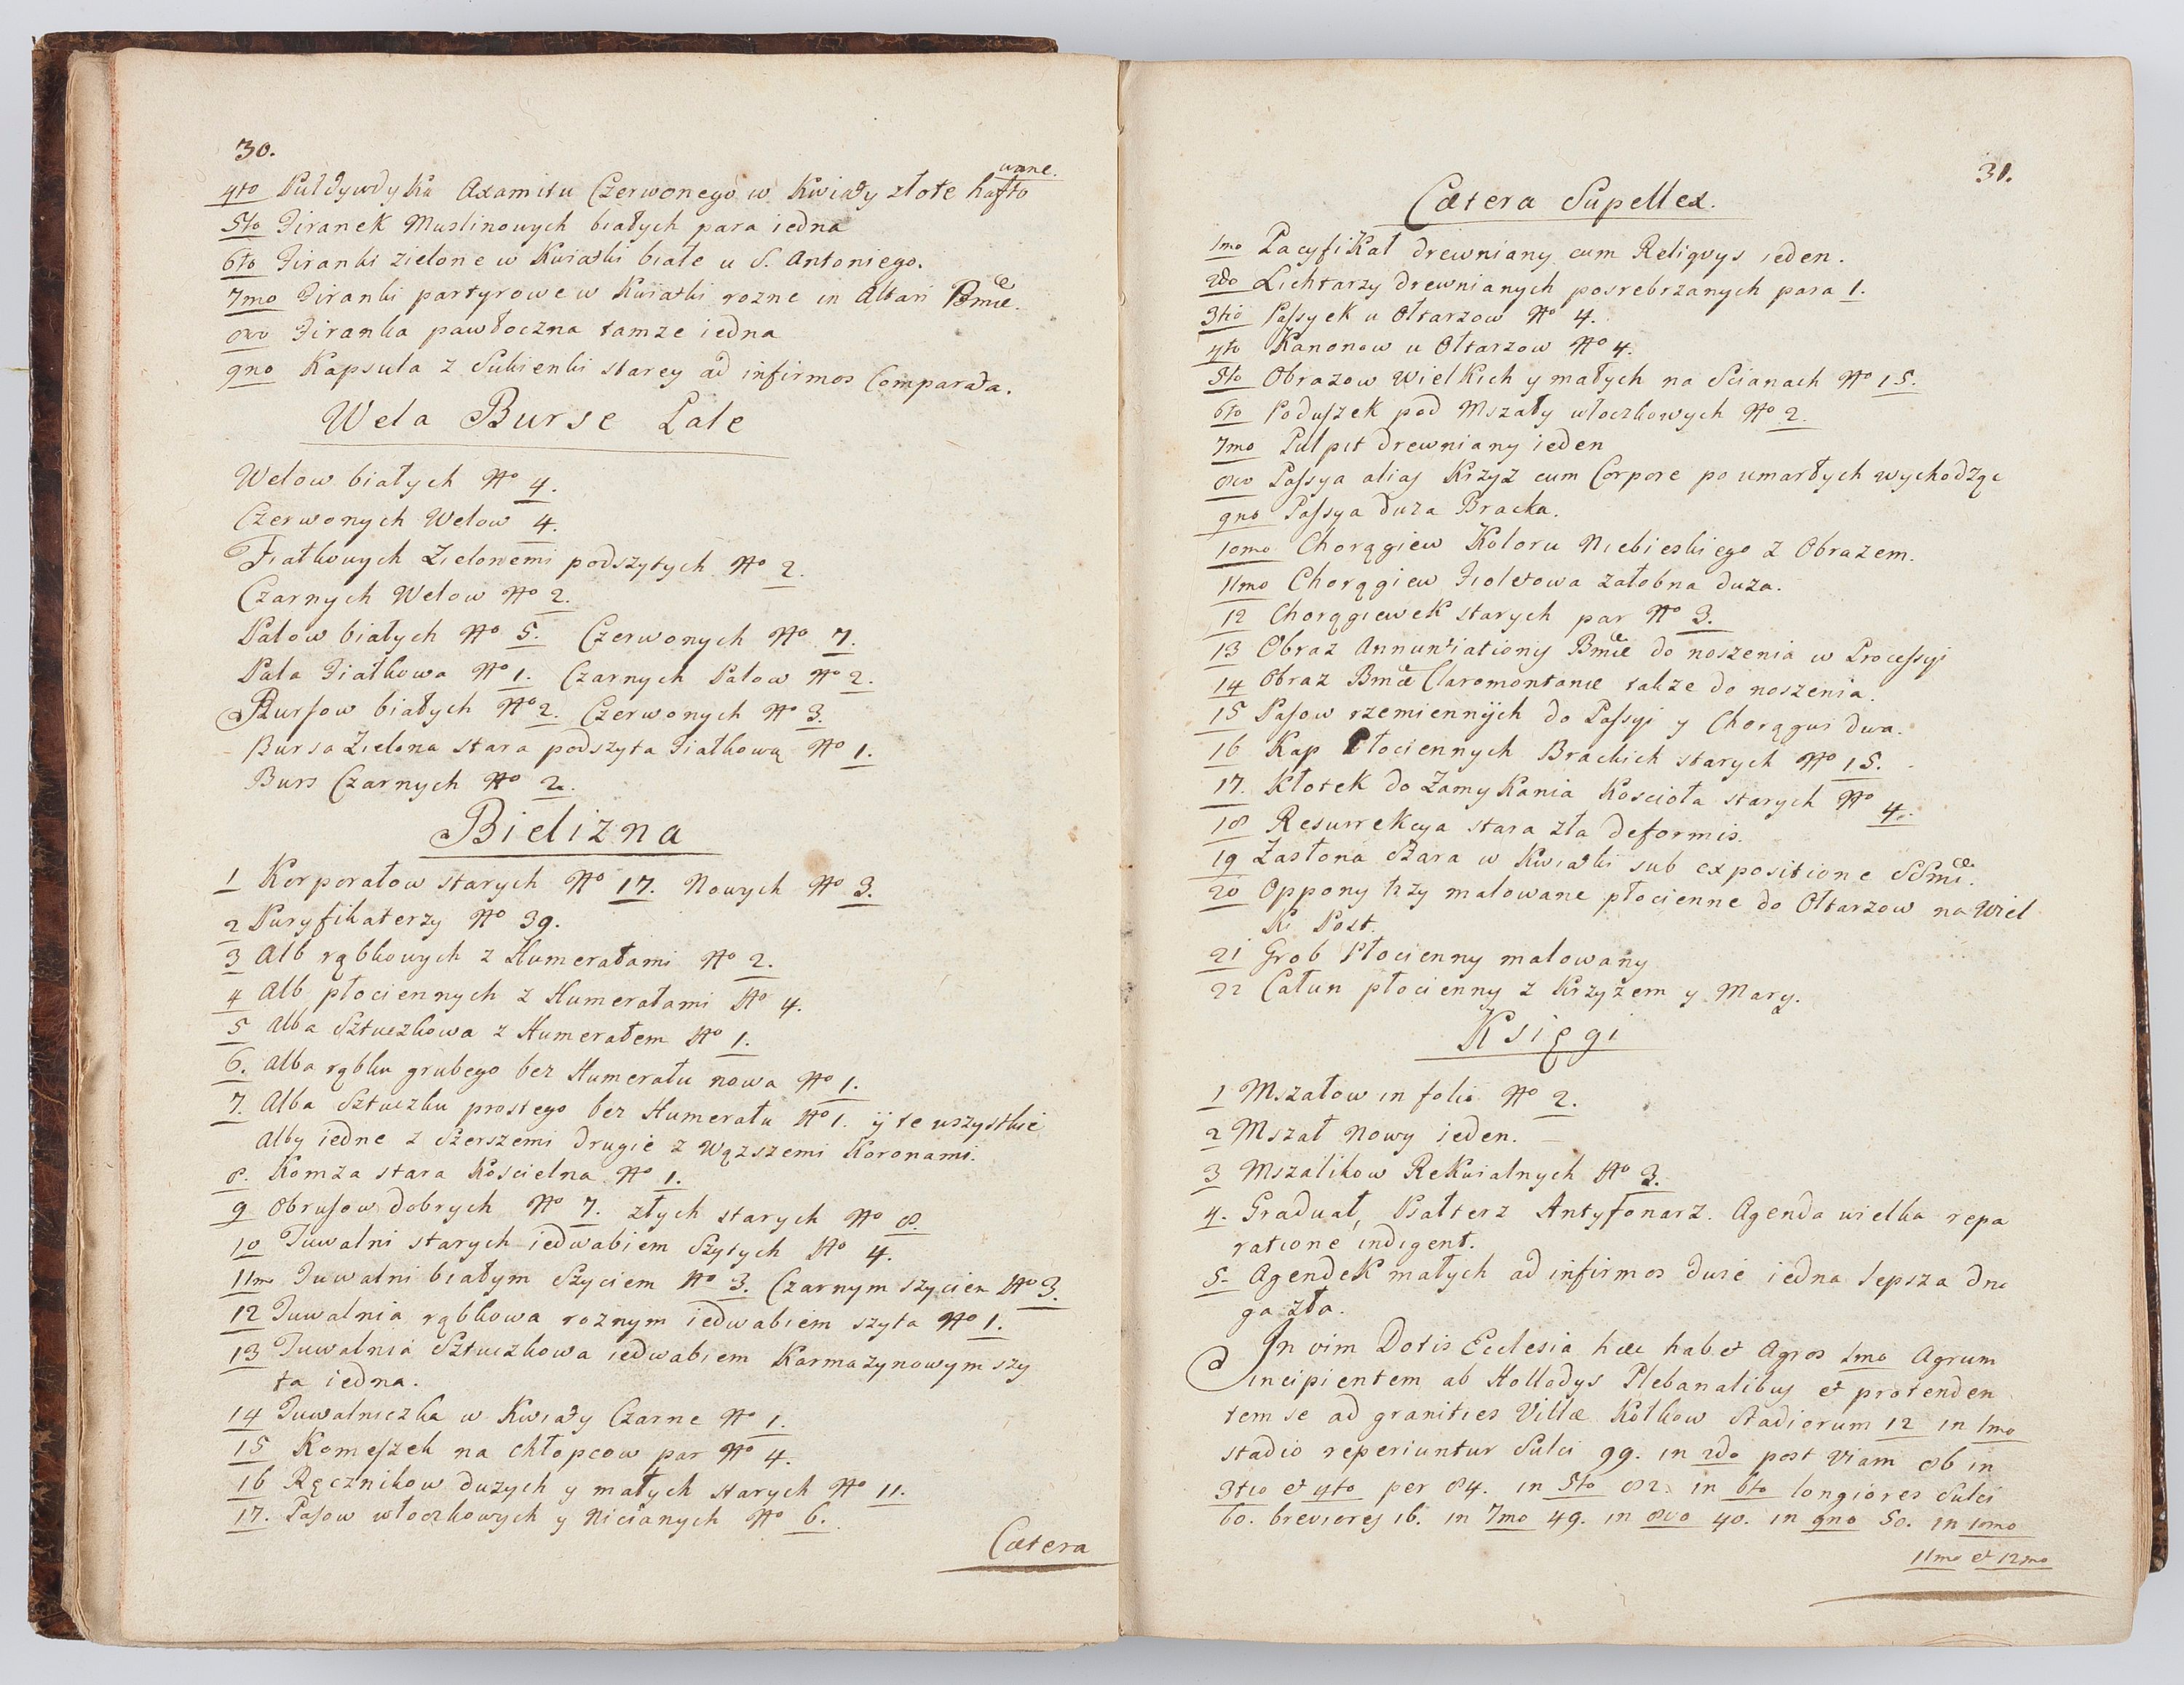 30.
wane.
4to Puldywdyka Axamitu Czerwonego w Kwiaty złote hafto
5to Firanek Muslinowych białych para iedna
6to Firanki zielone w Kwiatki białe u S. Antoniego.
7mo Firanki partyrowe w Kwiatki rozne in Altari Bmæ.
8vo Firanka pawłoczna tamze iedna
9no Kapsuła z Sukienki starey ad infirmos Comparata.
Wela Burse Pale
Welow białych No 4.
Czerwonych Welow 4.
Fiałkowych Zielonemi podszytych No 2.
Czarnych Welow No 2.
Palow białych No 5. Czerwonych No 7.
Pala Fiałkowa No 1. Czarnych Palow No 2.
Bursow białych No 2. Czerwonych No 3.
Bursa Zielona stara podszyta Fiałkową No 1.
Burs Czarnych No 2.
Bielizna
1 Korporałow starych No 17. Nowych No 3.
2 Puryfikaterzy No 39.
3 Alb rąbkowych z Humerałami No 2.
4 Alb płociennych z Humerałami No 4.
5 Alba Sztuczkowa z Humerałem No 1.
6. Alba rąbku grubego bez Humerału nowa No 1.
7. Alba Sztuczku prostego bez Humerału No 1. ÿ te wszystkie
Alby iedne z Szerszemi drugie z Wązszemi Koronami.
8. Komza stara Koscielna No 1.
9 Obrusow dobrych No 7. złych starych No 8.
10 Tuwalni starych iedwabiem Szytych No 4.
11mo Tuwalni białym Szyciem No 3. Czarnym szyciem No 3.
12 Tuwalnia rąbkowa roznym iedwabiem szyta No 1.
13 Tuwalnia Sztuczkowa iedwabiem Karmazynowym szy
ta iedna.
14 Tuwalniczka w Kwiaty Czarne No 1.
15 Komeszek na chłopcow par No 4.
16 Ręcznikow duzych y małych starych No 11.
17. Pasow włoczkowych y Nicianych No 6.
Cætera
31.
Cætera Supellex.
1mo Pacyfikał drewniany cum Reliqvys ieden.
2do Lichtarzy drewnianych posrebrzanych para 1.
3tio Passyek u Ołtarzow No 4.
4to Kanonow u Ołtarzow No 4.
5to Obrazow Wielkich y małych na Scianach No 15.
6to Poduszek pod Mszały włoczkowych No 2.
7mo Pulpit drewniany ieden
8vo Passya alias Krzyż cum Corpore po umarłych wychodząc
9no Passya duza Bracka.
10mo Chorągiew Koloru Niebieskiego z Obrazem.
11mo Chorągiew Fioletowa załobna duza.
12 Chorągiewek starych par No 3.
13 Obraz Annuntiationis Bmæ do noszenia w Processyi
14 Obraz Bmæ Claromontanæ takze do noszenia.
15 Pasow rzemiennÿch do Passyi y Chorągwi dwa.
16 Kap Płociennych Brackich starych No 15.
17. Kłotek do Zamykania Koscioła starych No 4.
18 Resurrekcya stara zła deformis.
19 Zasłona Szara w Kwiatki sub expositione SSmi.
20 Oppony trzy malowane płocienne do Ołtarzow na Wiel
Ki Post.
21 Grob Płocienny malowany
22 Całun płocienny z Krzyżem y Mary.
Księgi
1 Mszałow in folio No 2.
2 Mszał Nowy ieden.
3 Mszalikow Rekwialnych No 3.
4. Graduał, Psałterz Antyfonarz. Agenda wielka repa
ratione indigent.
5. Agendek małych ad infirmos dwie iedna lepsza dru
ga zła.
In vim Dotis Ecclesia hæc habet Agros 1mo Agrum
incipientem ab Hollodys Plebanalibus et protenden
tem se ad granities Villæ Kołkow Stadiorum 12 in 1mo
stadio reperiuntur Sulci 99. in 2do post Viam 86 in
3tio et 4to per 84. in 5to 82. in 6to longiores Sulci
60. breviores 16. in 7mo 49. in 8vo 40. in 9no 50. in 10mo
11mo et 12mo